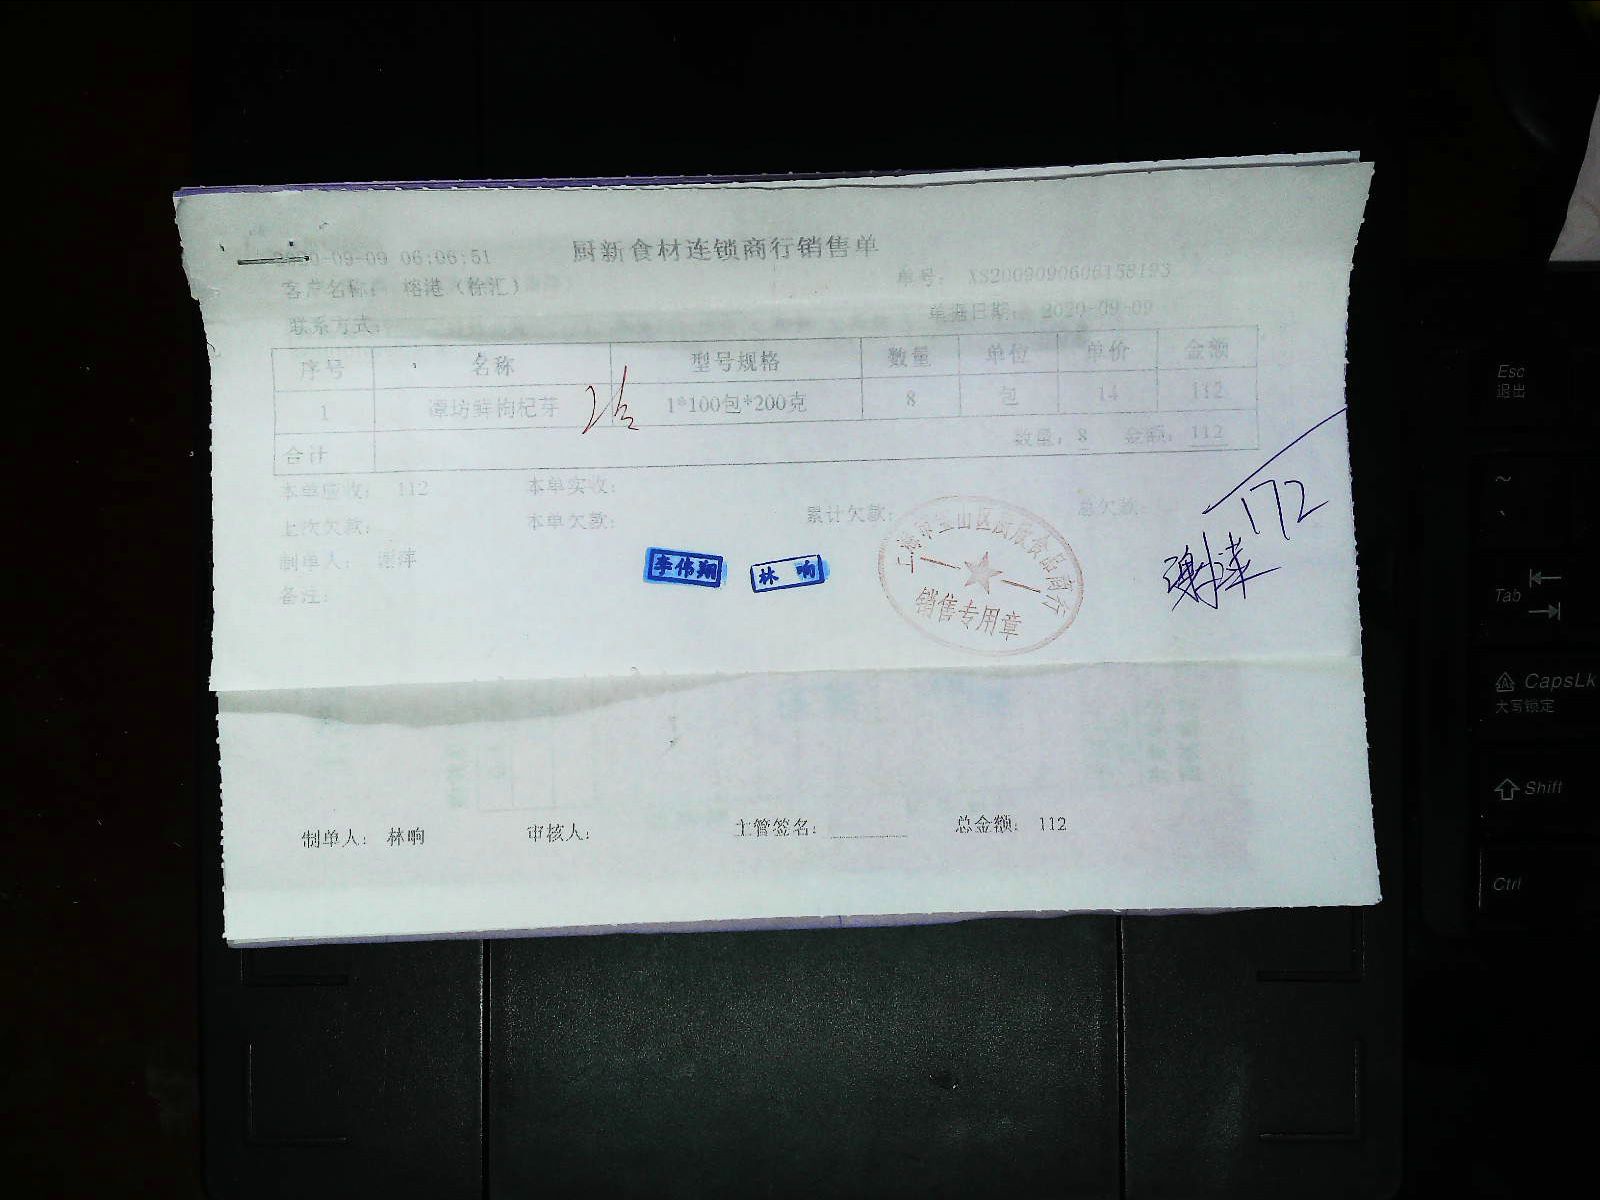 厨新食材连锁商行销售单
2020-09-09 06:06:51
客户名称： 榕港（徐汇）
单号： XS2009090606158193
联系方式：
单据日期： 2020-09-09
序号 名称 型号规格 数量 单位 单价 金额
1 潭坊鲜枸杞芽 1*100包*200克 8 包 14 112
合计 数量：8 金额：112
本单应收： 112 本单实收：
上次欠款： 本单欠款： 累计欠款： 总欠款：
制单人： 谢萍
备注：
李伟翔 林响
销售专用章
172
谢萍
制单人： 林响 审核人： 主管签名： 总金额： 112
Esc
退出
Tab
CapsLk
大写锁定
Shift
Ctrl